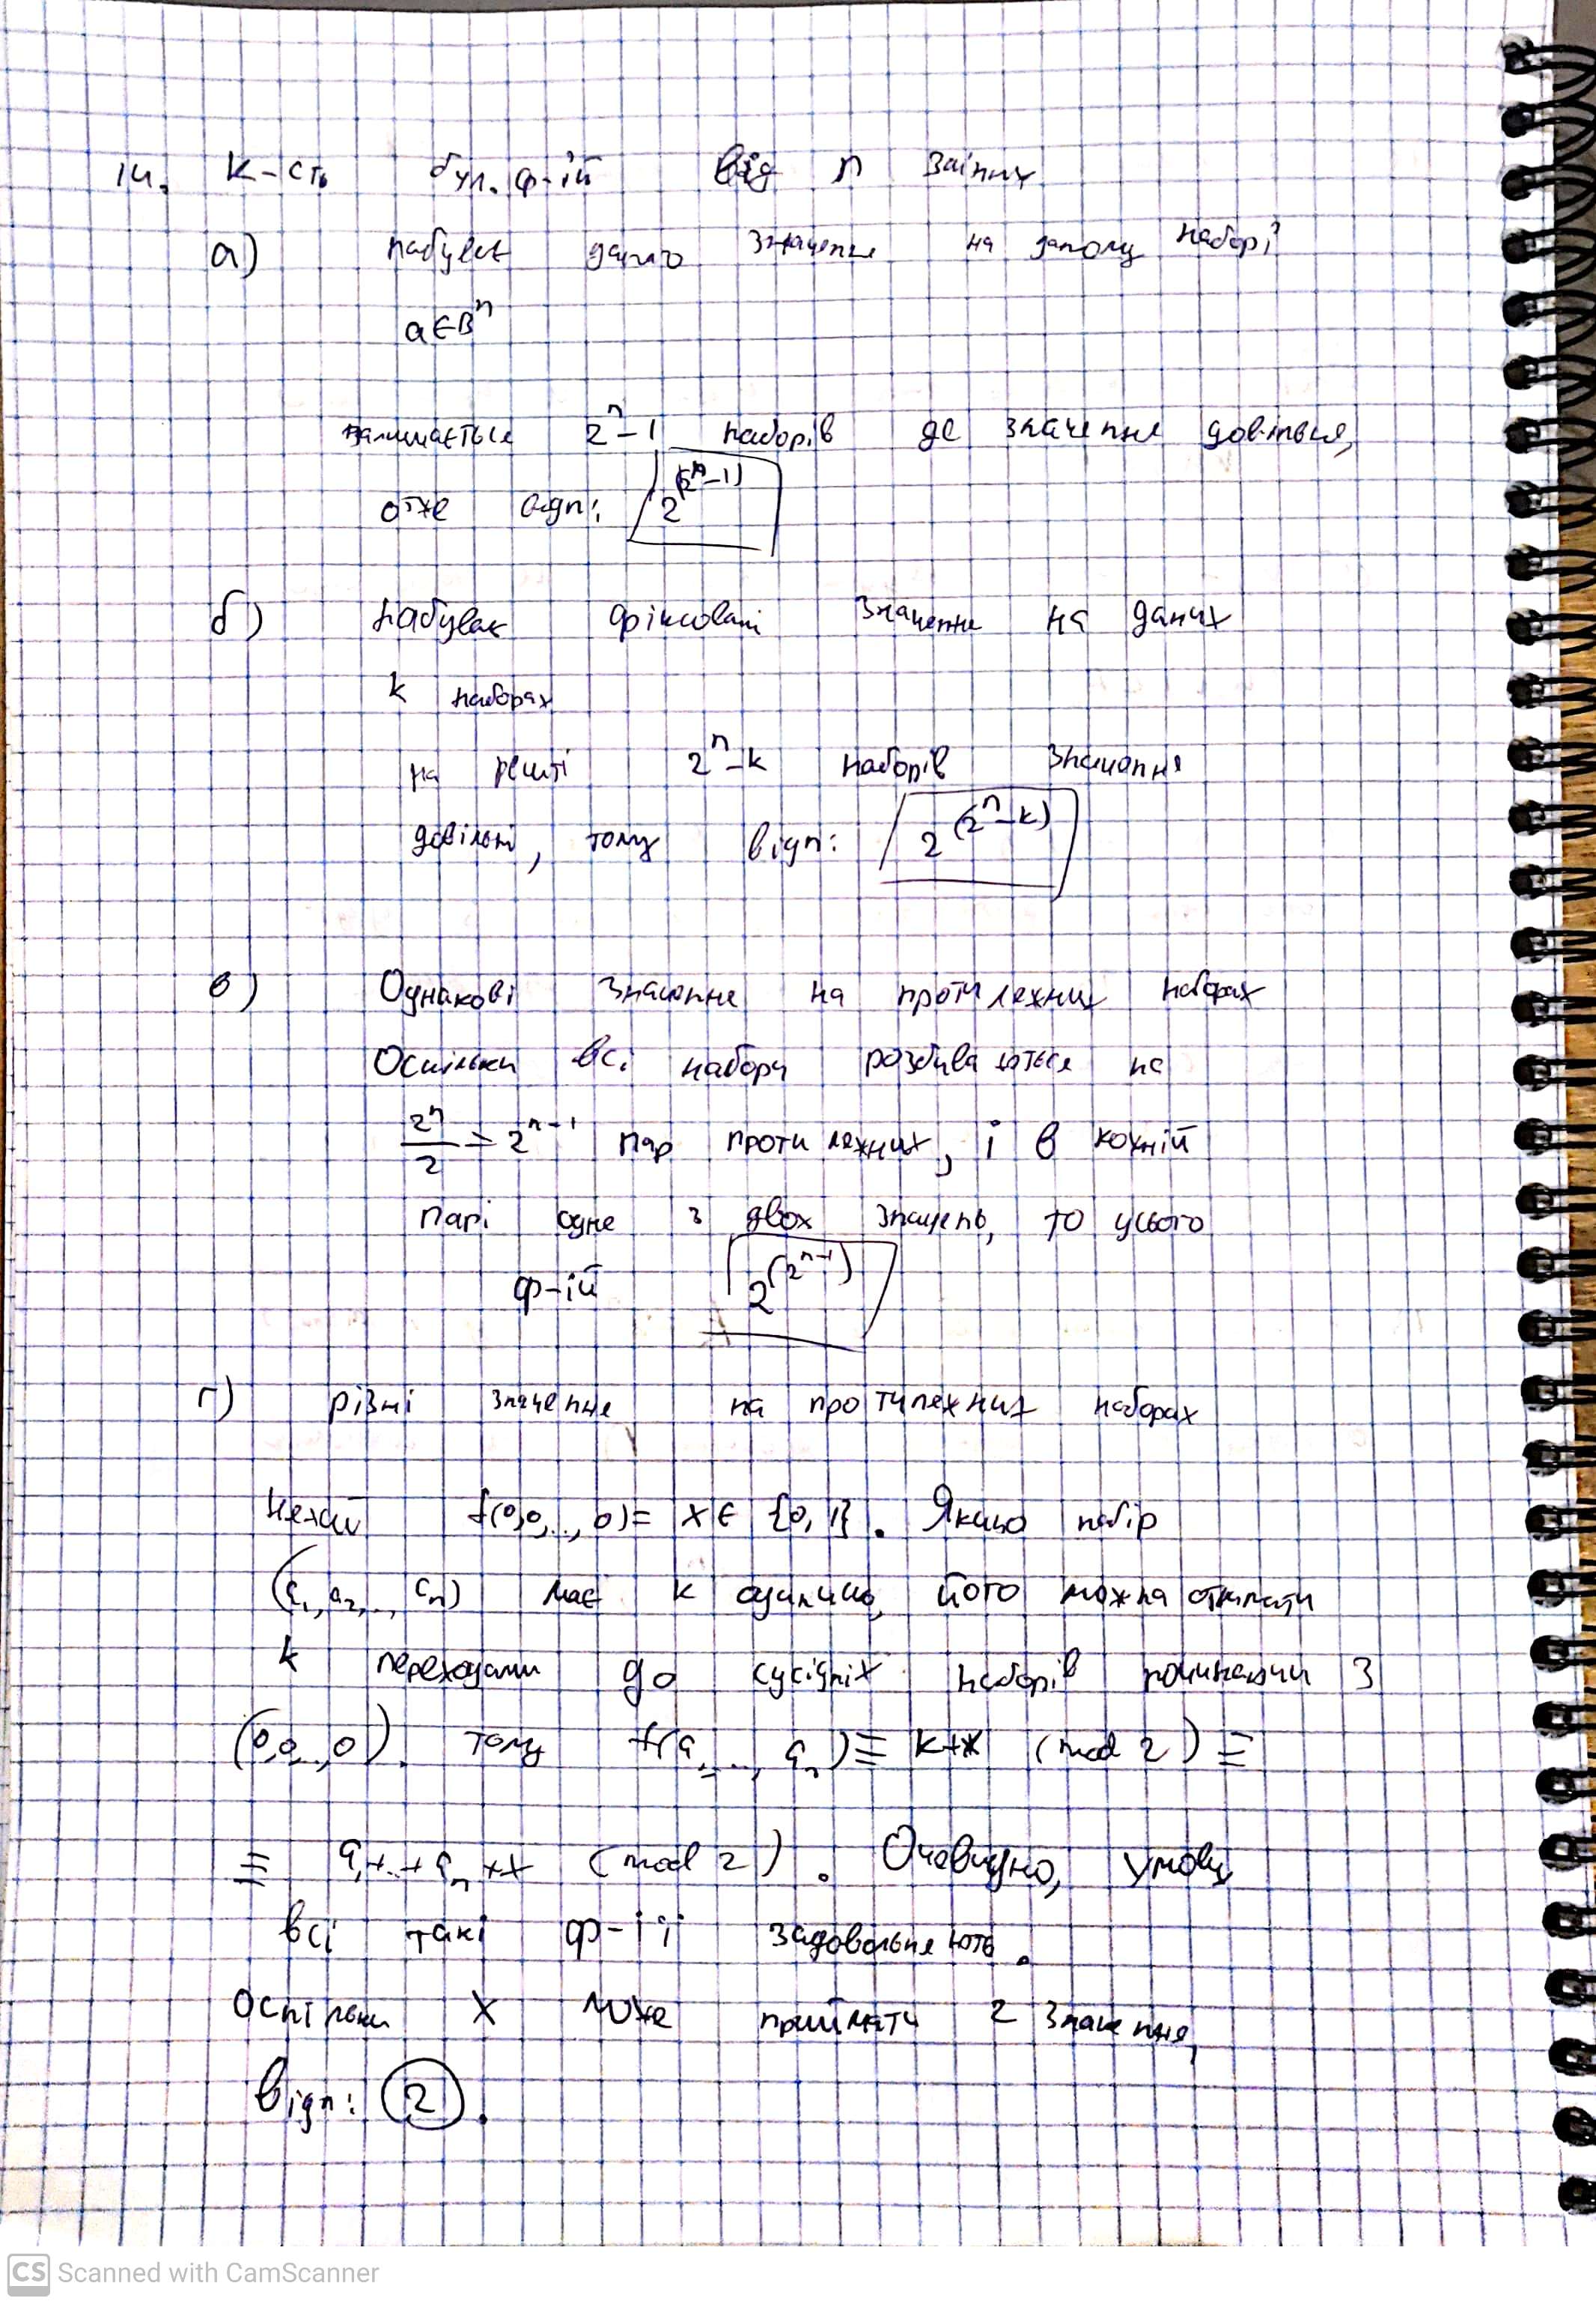 14. К-сть бул. ф-ій від n змінних
а) набуває даного значення на даному наборі
a∈Bⁿ
залишається 2ⁿ-1 наборів де значення довільне,
отже відп: 2^(2ⁿ-1)
б) набуває фіксовані значення на даних
k наборах
на решті 2ⁿ-k наборів значення
довільні, тому відп: 2^(2ⁿ-k)
в) Однакові значення на протилежних наборах
Оскільки всі набори розбиваються на
2ⁿ/2 = 2ⁿ⁻¹ пар протилежних, і в кожній
парі одне з двох значень, то усього
ф-ій 2^(2ⁿ⁻¹)
г) різні значення на протилежних наборах
Нехай f(0,0,..,0)= x∈{0,1}. Якщо набір
(a₁,a₂,..,aₙ) має k одиниць, його можна отримати
k переходами до сусідніх наборів починаючи з
(0,0..,0). тому f(a₁,..,aₙ)≡ k+x (mod 2) ≡
≡ a₁+..+aₙ+x (mod 2). Очевидно, умову
всі такі ф-ії задовольняють.
Оскільки x може приймати 2 значення,
Відп: 2.
CS Scanned with CamScanner